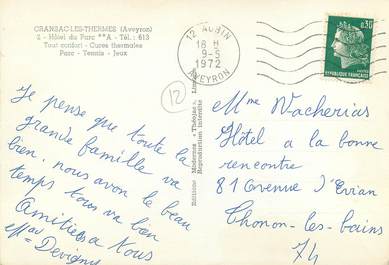 CRANSAC-LES-THERMES (Aveyron)
2 - Hôtel du Parc **A - Tél. : 613
Tout confort - Cures thermales
Parc - Tennis - Jeux
Je pense que toute la
grande famille va
bien, nous avon le beau
temps tous va bien
Amitiés a Nous
Devigny
Editions Modernes « Théojac »
Reproduction interdite
12 AUBIN
18 H
9-5
1972
AVEYRON
0,30
REPUBLIQUE FRANÇAISE
12
Mme Wacherias
Hôtel a la bonne
rencontre
81 Avenue d'Evian
Thonon-les-bains
74